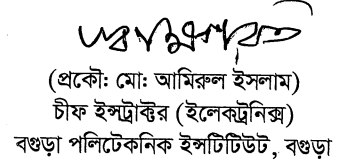 (প্রকৌ: মো: আমিরুল ইসলাম)
চীফ ইন্সট্রাক্টর (ইলেকট্রনিক্স)
বগুড়া পলিটেকনিক ইন্সটিটিউট, বগুড়া